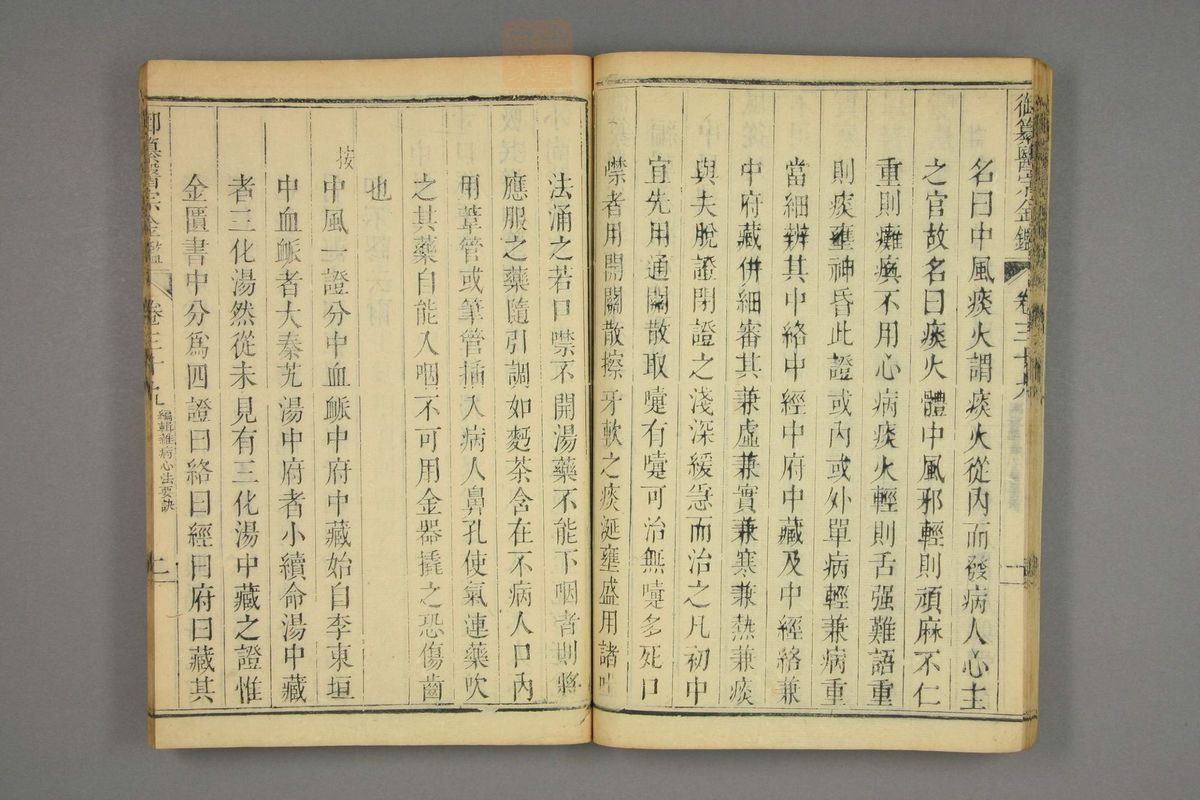 御纂醫宗金鑑 卷三十九
名曰中風痰火謂痰火從內而發病人心主
之官故名曰痰火體中風邪輕則頑麻不仁
重則癱瘓不用心病痰火輕則舌强難語重
則痰壅神昏此證或內或外單病輕兼病重
當細辨其中絡中經中府中藏及中經絡兼
中府藏併細審其兼虛兼實兼寒兼熱兼痰
與夫脫證閉證之淺深緩急而治之凡初中
宜先用通關散取嚏有嚏可治無嚏多死口
噤者用開關散擦牙軟之痰涎壅盛用諸吐
法涌之若口噤不開湯藥不能下咽者則將
應服之藥隨引調如麪茶含在不病人口內
用葦管或筆管插入病人鼻孔使氣連藥吹
之其藥自能入咽不可用金器撬之恐傷齒
也
按中風一證分中血脈中府中藏始自李東垣
中血脈者大秦艽湯中府者小續命湯中藏
者三化湯然從未見有三化湯中藏之證惟
金匱書中分為四證曰絡曰經曰府曰藏其
御纂醫宗金鑑 卷三十九 編輯雜病心法要訣 二